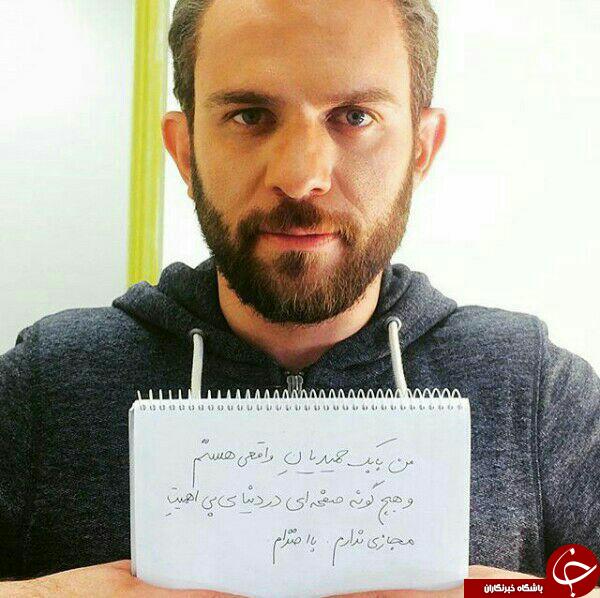 من بابک حمیدیانِ واقعی هستم
و هیچ گونه صفحه ای در دنیای بی اهمیتِ
مجازی ندارم. با احترام.
باشگاه خبرنگاران